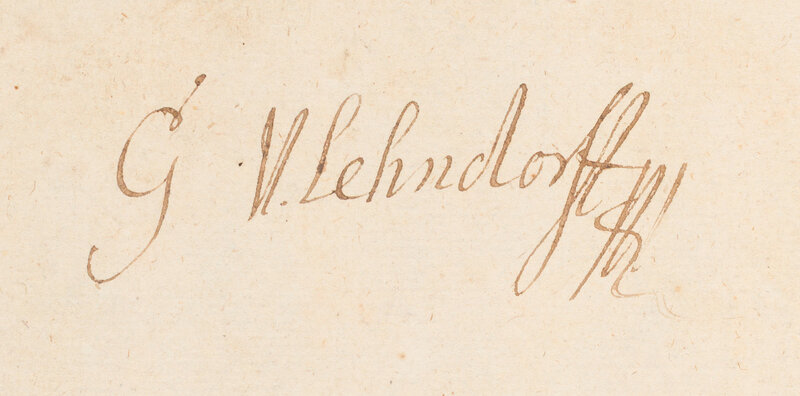 G V. Lehndorff